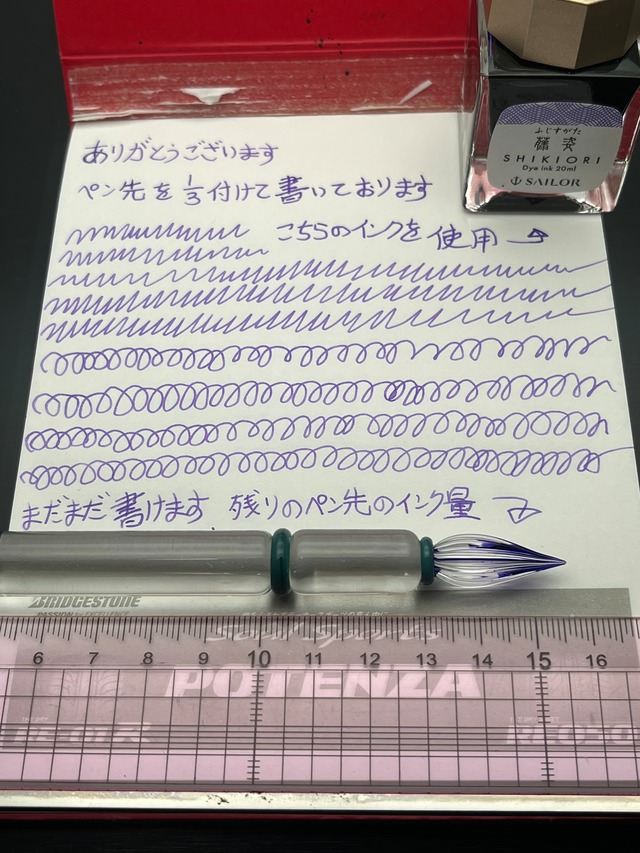 ふじすがた
藤姿
SHIKIORI
Dye ink 20ml
SAILOR
ありがとうございます
ペン先を1/3付けて書いております
こちらのインクを使用→
まだまだ書けます 残りのペン先のインク量
BRIDGESTONE
PASSION for EXCELLENCE
6 7 8 9 10 11 12 13 14 15 16
POTENZA